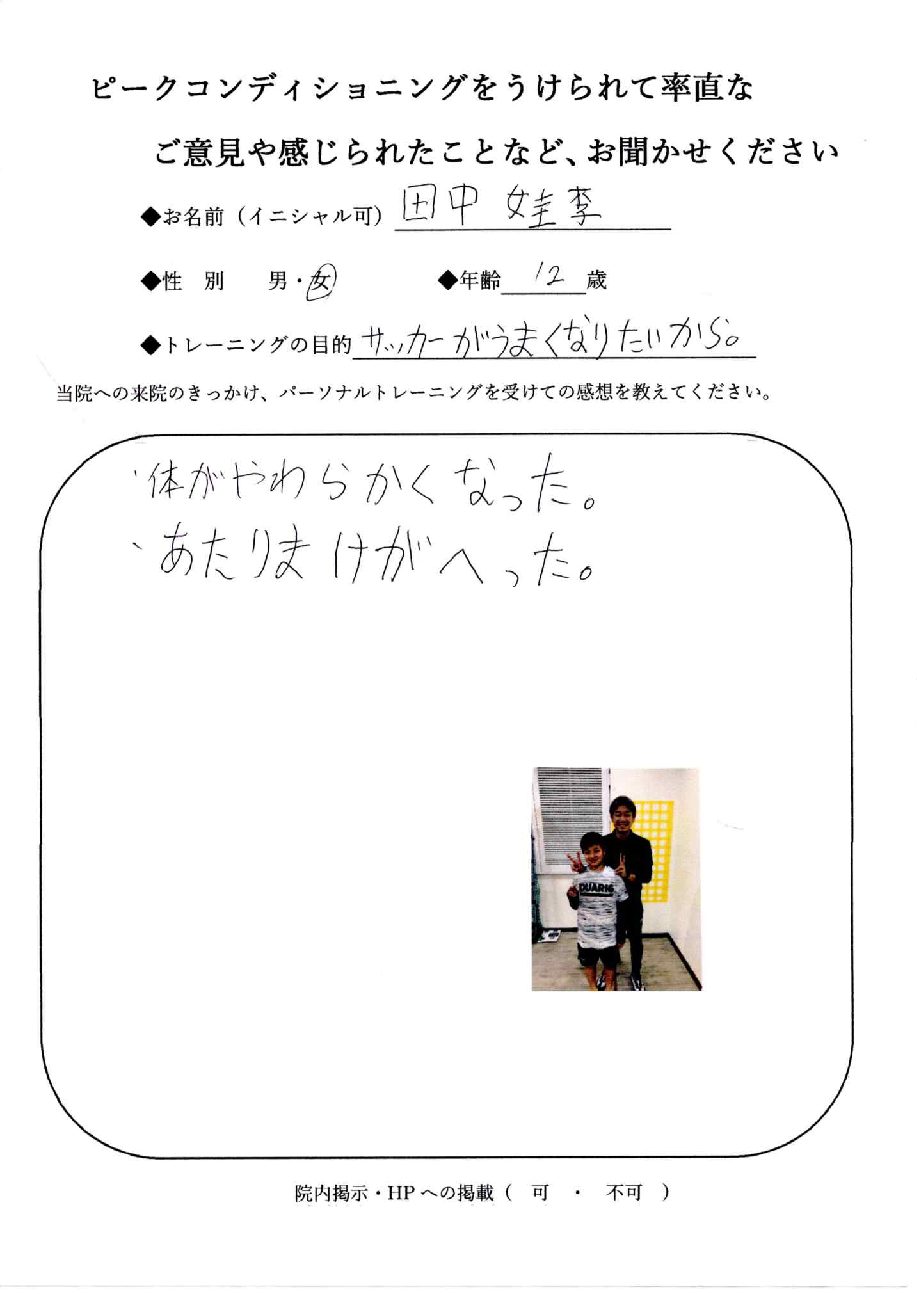 ピークコンディショニングをうけられて率直な
ご意見や感じられたことなど、お聞かせください
◆お名前（イニシャル可） 田中 娃李
◆性 別 男・女 ◆年齢 12 歳
◆トレーニングの目的 サッカーがうまくなりたいから。
当院への来院のきっかけ、パーソナルトレーニングを受けての感想を教えてください。
・体がやわらかくなった。
・あたりまけがへった。
DUARIG
院内掲示・HPへの掲載（ 可 ・ 不可 ）